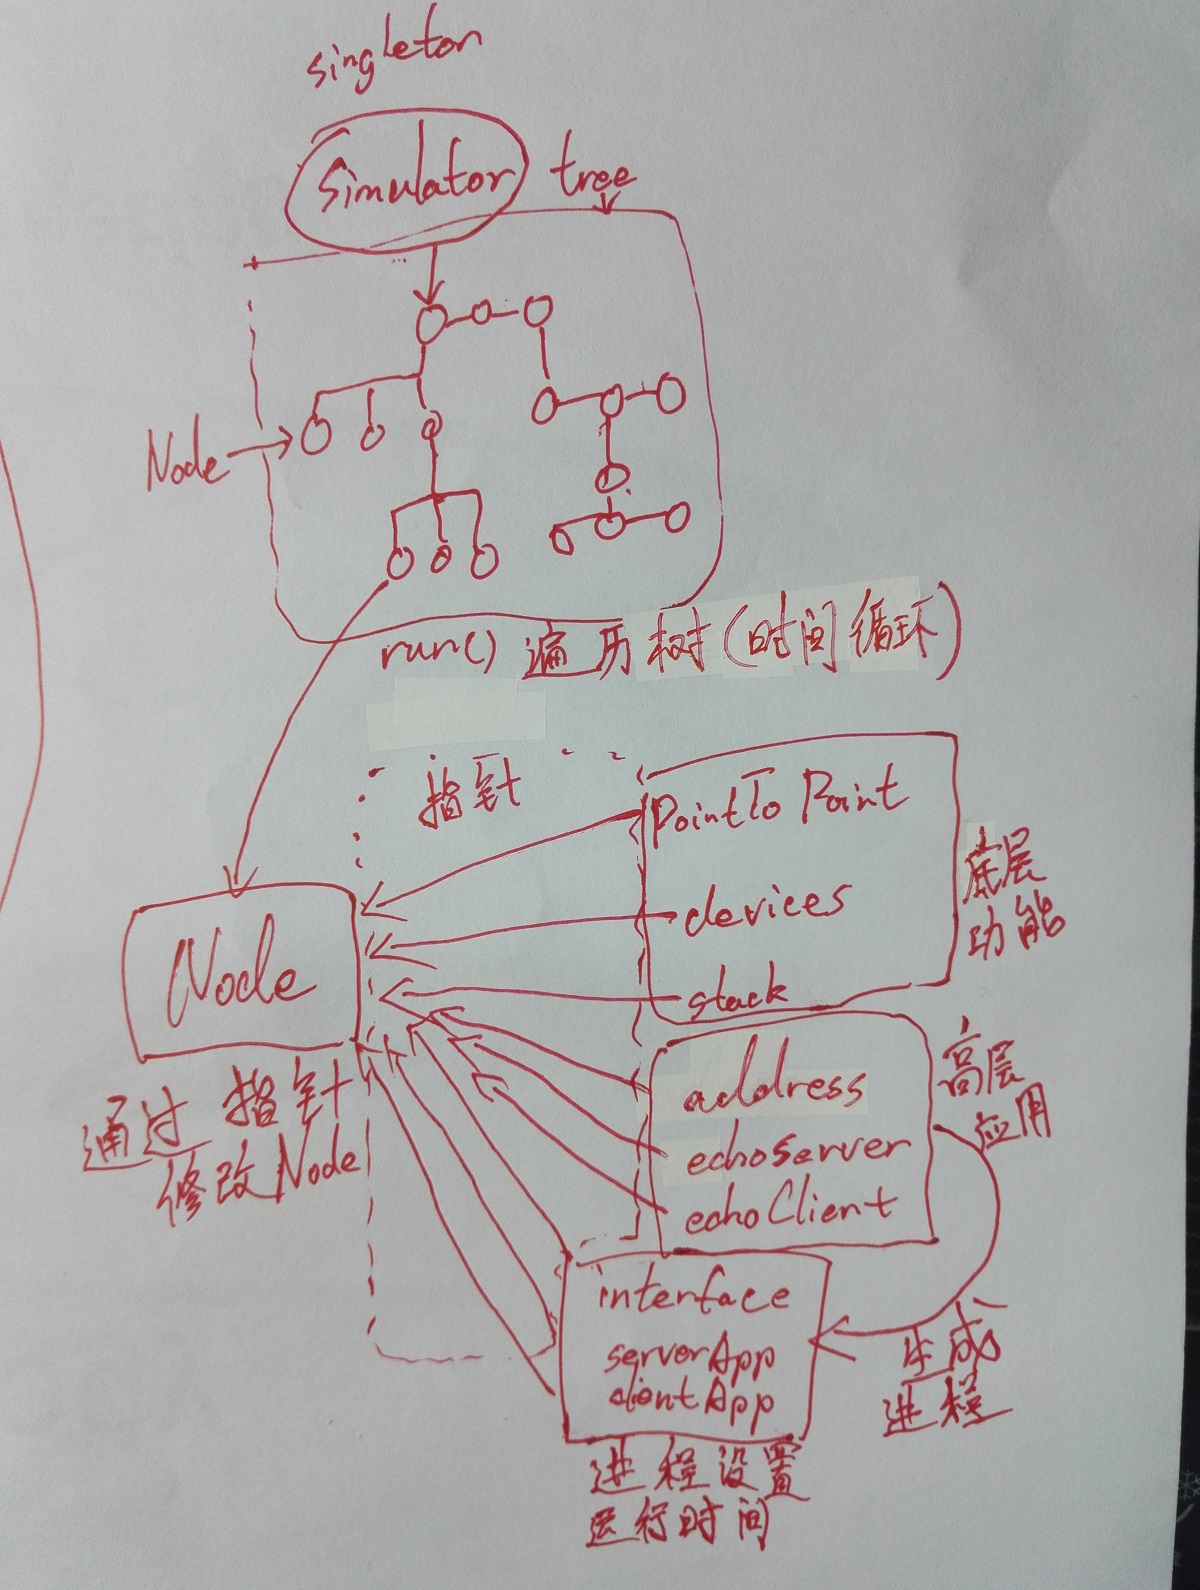 singleton
Simulator
tree
Node
run() 遍历树(时间循环)
指针
PointTo Point
devices
stack
底层
功能
Node
通过指针
修改Node
address
echoServer
echoClient
高层
应用
interface
serverApp
clientApp
生成
进程
进程设置
运行时间